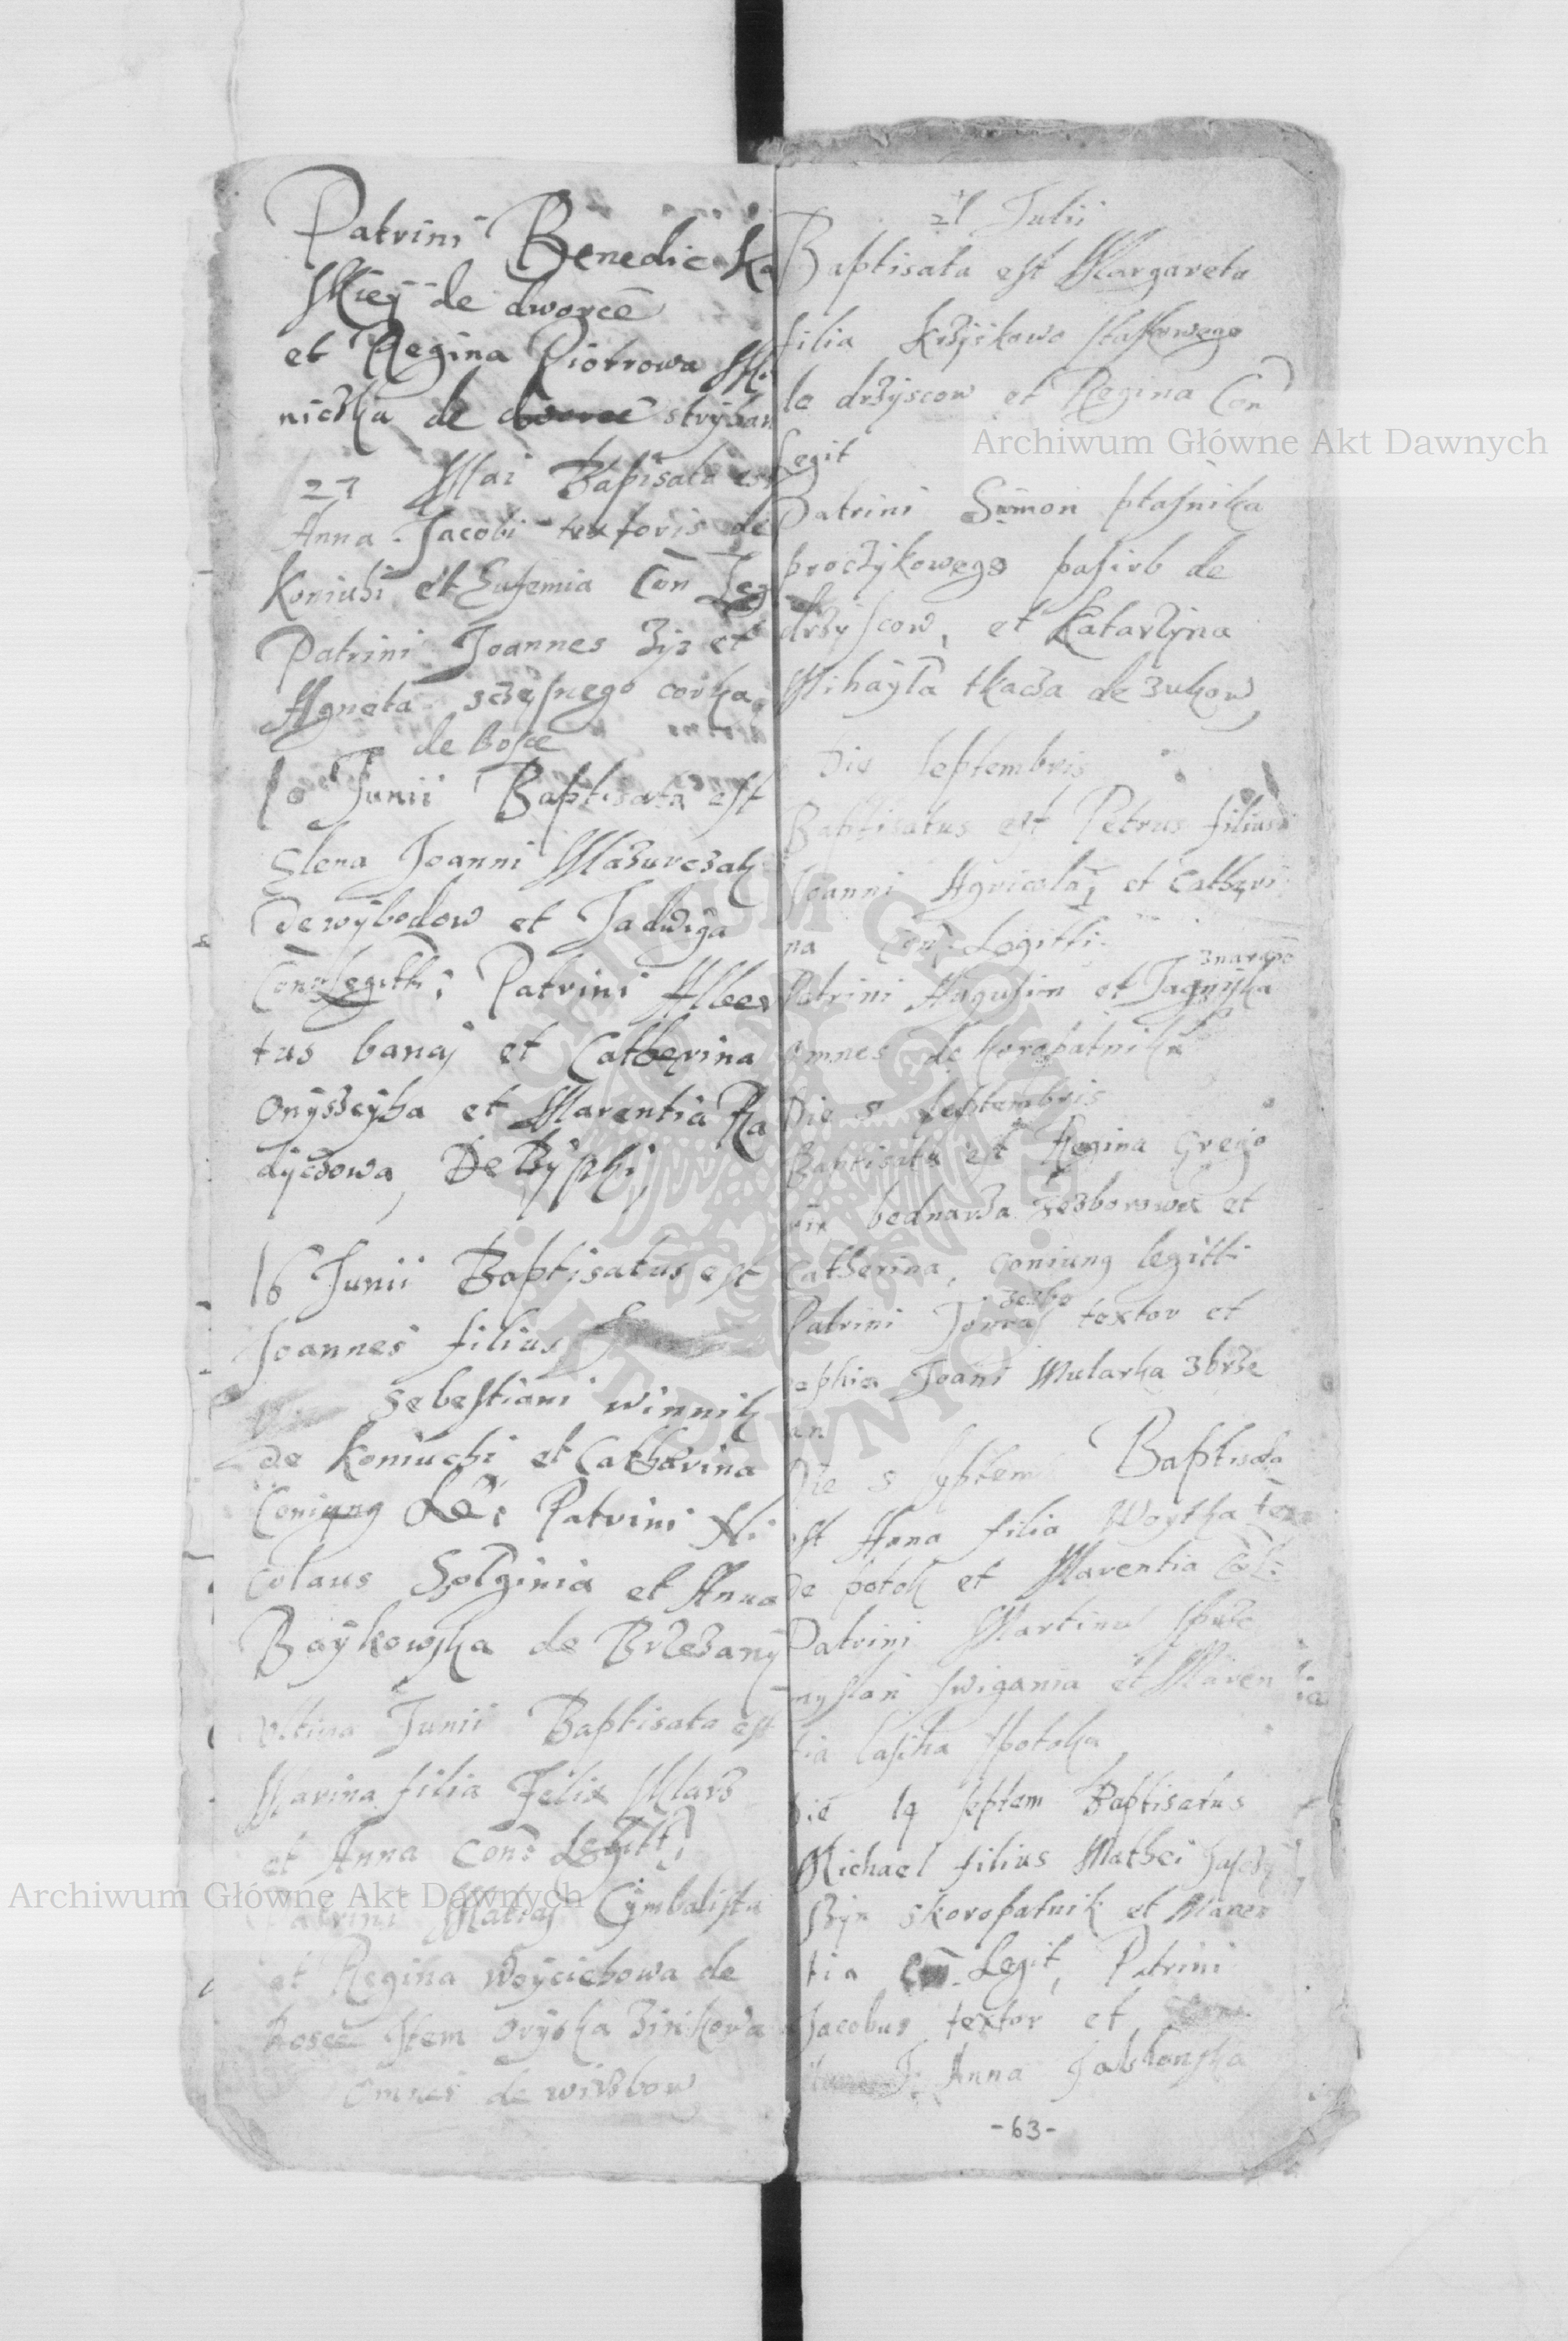 Patrini Benedic Ka
skiey de dworce
et Regina Piotrowa Mi
niczka de stryhan
27 Mai Baptisata est
Anna Jacobi textoris de
Koniuhi et Eufemia Con Leg
Patrini Joannes Zis et
Agneta sczęsnego corka
de Bosce
10 Junii Baptisata est
Elena Joanni Mazurczak
De wybodow et Jadwiga
Con Legitti: Patrini Alber
tus banas et Catherina
Onyszcyha et Marentia Ra
dyczowa, De Ryszki,
16 Junii Baptisatus est
Joannes filius
Sebestiani winnik
de koniuchi et Catharina
Coniung Le: Patrini Ni
colaus Solginia et Anna
Baykowska de Brzezany
Vltima Junii Baptisata est
Marina filia Felix Marz
et Anna Con: Legitt:
Patrini Matias Cymbalista
et Regina Woyciehowa de
bosce Item Oryszka Zinkowa
omnes de wirzbow
21 Julii
Baptisata est Margareta
filia krzyskowo staskowego
le drzyscow et Regina Con
Legit
Patrini Simon ptasnika
proczykowego pasirb de
drzyscow, et Katarzyna
Mihayla tkacza de zukow,
Die septembris
Baptisatus est Petrus filius
Joanni Agricola et Catheri
na Con: Legitti:
Patrini Augustin et Jagnyska
omnes de koropatniki
Die 5 septembris
Baptisata est Regina Grego
rii bednarza zezborowa et
Catherina, coniung legitti
zezbo
Patrini Tomas textor et
Sophia Joani Mularka zbrze
zan
Die 5 septem Baptisata
est Anna filia Woytka
de potok et Marentia Co L:
Patrini Martinus
swigania et Maren
tia lasika spotoka,
Die 19 septem Baptisatus
Michael filius Mathei
Skoropatnik et Maren
tia Con Legit, Patrini
Jacobus textor et
Anna Jablkonska
-63-
Archiwum Główne Akt Dawnych
Archiwum Główne Akt Dawnych
ARCHIWUM GŁÓWNE AKT DAWNYCH